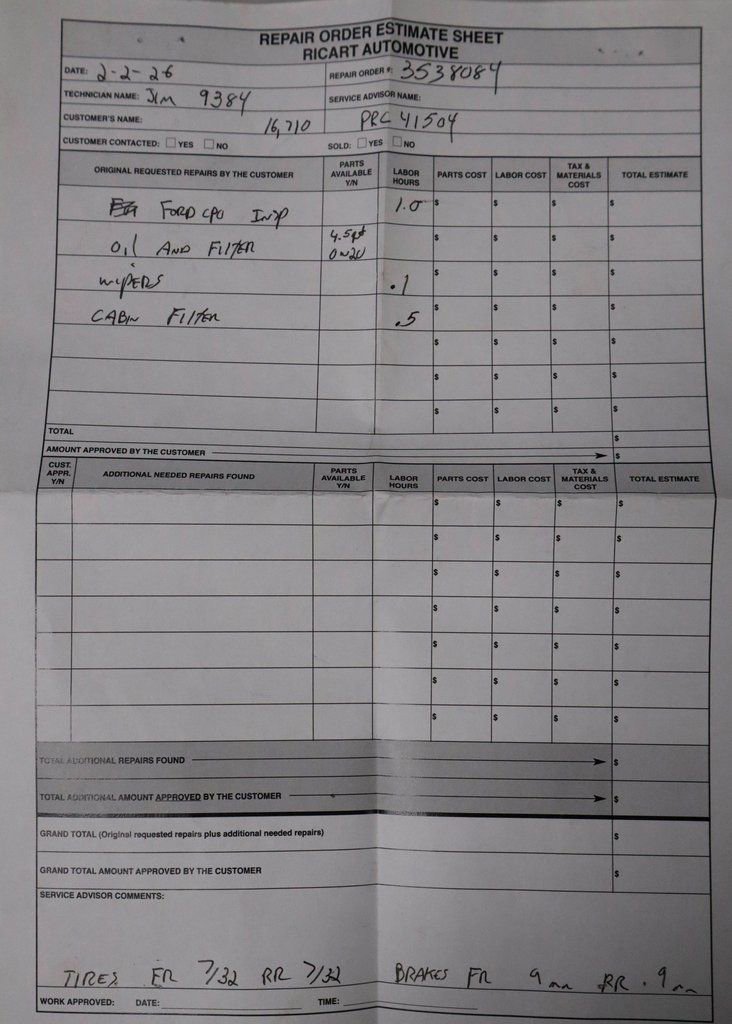 REPAIR ORDER ESTIMATE SHEET
RICART AUTOMOTIVE
DATE: 2-2-26 REPAIR ORDER #: 3538084
TECHNICIAN NAME: JIM 9384 SERVICE ADVISOR NAME:
CUSTOMER'S NAME: 16,710 PRC 41504
CUSTOMER CONTACTED: YES NO SOLD: YES NO
ORIGINAL REQUESTED REPAIRS BY THE CUSTOMER PARTS AVAILABLE Y/N LABOR HOURS PARTS COST LABOR COST TAX & MATERIALS COST TOTAL ESTIMATE
FORD CPO INSP 1.0 $ $ $ $
OIL AND FILTER 4.5qt 0W20 $ $ $ $
WIPERS .1 $ $ $ $
CABIN FILTER .5 $ $ $ $
$ $ $ $
$ $ $ $
$ $ $ $
TOTAL $
AMOUNT APPROVED BY THE CUSTOMER $
CUST. APPR. Y/N ADDITIONAL NEEDED REPAIRS FOUND PARTS AVAILABLE Y/N LABOR HOURS PARTS COST LABOR COST TAX & MATERIALS COST TOTAL ESTIMATE
$ $ $ $
$ $ $ $
$ $ $ $
$ $ $ $
$ $ $ $
$ $ $ $
$ $ $ $
TOTAL ADDITIONAL REPAIRS FOUND $
TOTAL ADDITIONAL AMOUNT APPROVED BY THE CUSTOMER $
GRAND TOTAL (Original requested repairs plus additional needed repairs) $
GRAND TOTAL AMOUNT APPROVED BY THE CUSTOMER $
SERVICE ADVISOR COMMENTS:
TIRES FR 7/32 RR 7/32 BRAKES FR 9mm RR . 9mm
WORK APPROVED: DATE: TIME: